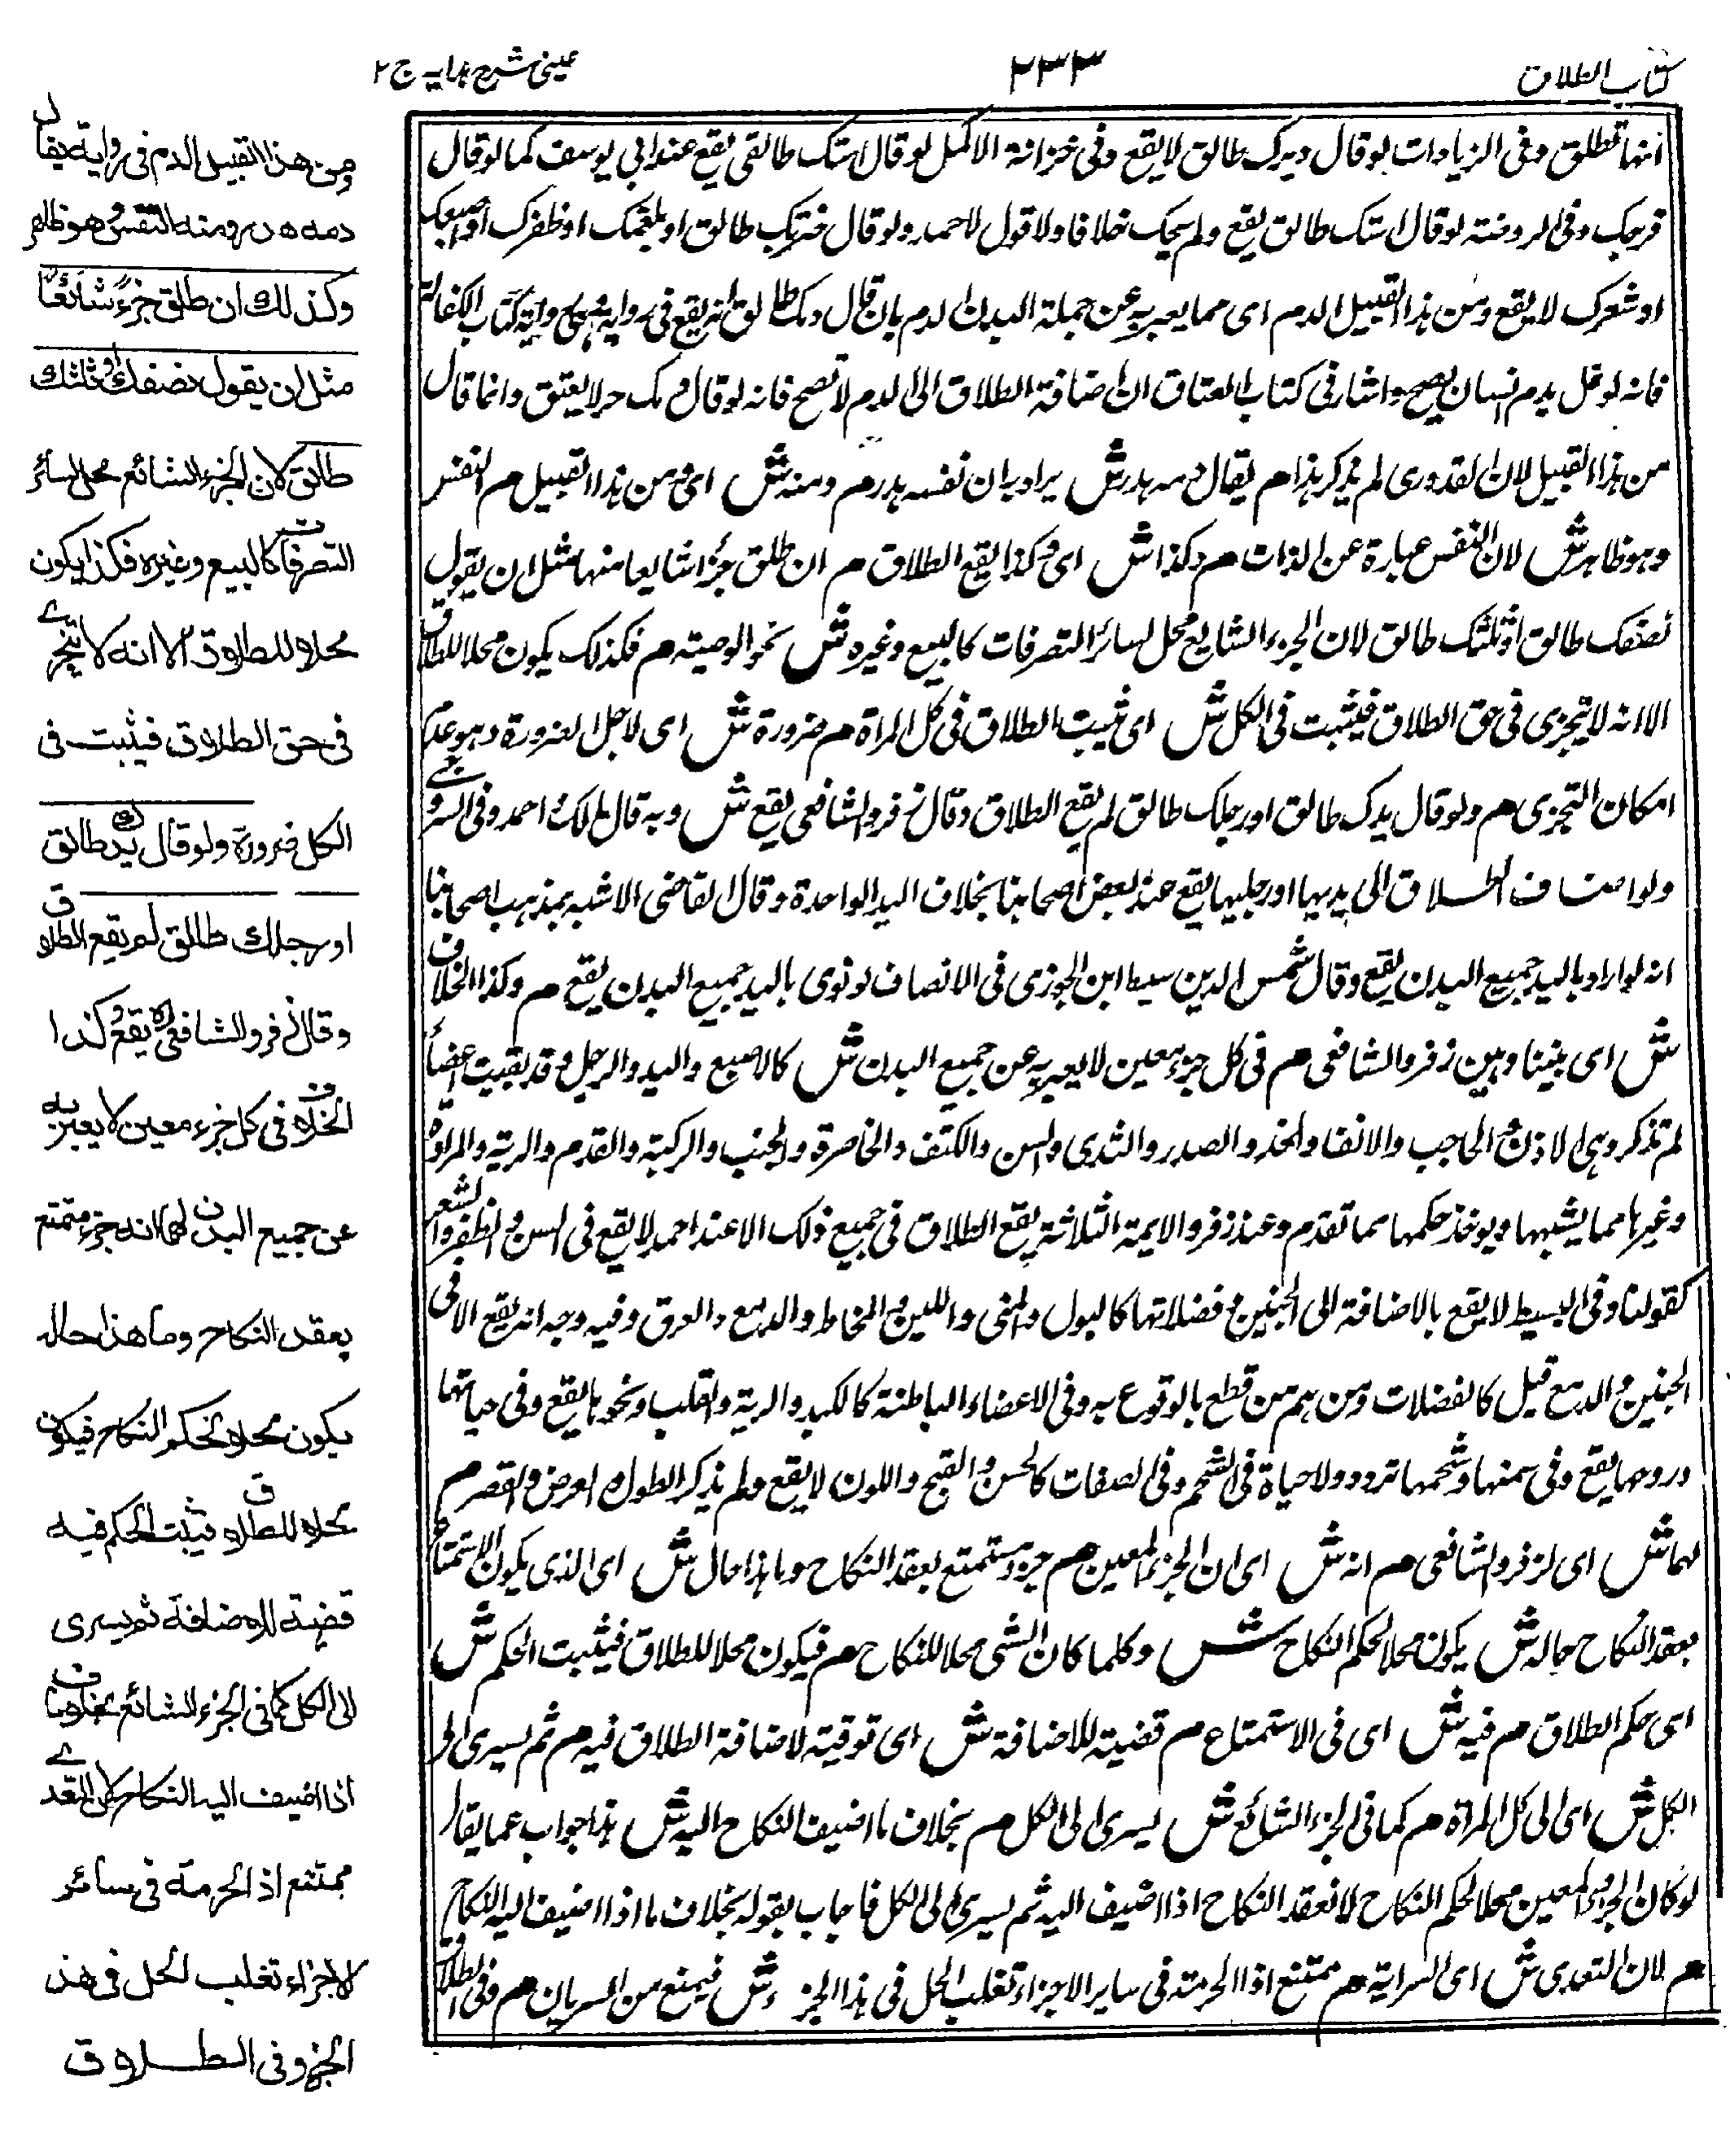 كتاب الطلاق
٢٣٣
عينى شرح هدايه ج ٢
انها تطلق وفى الزيادات لو قال دبرك طالق لا يقع وفى خزانة الاكمل لو قال استك طالق يقع عند ابي يوسف كما لو قال
فرجك وفى الروضة لو قال استك طالق يقع ولم يحك خلافا ولا قول لاحمد ولو قال طالق او بلغمك او ظفرك او اصبعك
او شعرك لا يقع ومن هذا القبيل الدم اى مما يعبر به عن جملة البدن الدم بان قال دمك طالق انه يقع فى رواية وهى رواية كتاب الكفالة
فانه لو كفل بدم انسان يصح واشار فى كتاب العتاق ان اضافة الطلاق الى الدم لا تصح فانه لو قال دمك حر لا يعتق وانما قال
من هذا القبيل لان القدورى لم يذكر هذا م يقال دمه هدر ش يراد به ان نفسه هدر م ومنه ش اى ومن هذا القبيل م النفس
وهو ظاهر ش لان النفس عبارة عن الذات م وكذا ش اى وكذا يقع الطلاق م ان طلق جزءا شايعا منها مثل ان يقول
نصفك طالق او ثلثك طالق لان الجزء الشايع محل لسائر التصرفات كالبيع وغيره ش نحو الوصية م فكذلك يكون محلا للطلاق
الا انه لا يتجزى فى حق الطلاق فيثبت فى الكل ش اى يثبت الطلاق فى كل المراة م ضرورة ش اى لاجل الضرورة وهو عدم
امكان التجزى م ولو قال يدك طالق او رجلك طالق لم يقع الطلاق وقال زفر والشافعى يقع ش وبه قال مالك واحمد وفى السروجى
ولو اضاف الطلاق الى يديها او رجليها يقع عند بعض اصحابنا بخلاف اليد الواحدة وقال القاضى الاشبه بمذهب اصحابنا
انه لو اراد باليد جميع البدن يقع وقال شمس الدين سبط ابن الجوزى فى الانصاف لو نوى باليد جميع البدن يقع م وكذا الخلاف
ش اى بيننا وبين زفر والشافعى م فى كل جزء معين لا يعبر به عن جميع البدن ش كالاصبع واليد والرجل وقد بقيت اعضاء
لم تذكر وهى الاذن والحاجب والانف والخد والصدر والثدى والسن والكتف والخاصرة والجنب والركبة والقدم والرية والمرارة
وغيرها مما يشبهها ويوخذ حكمها مما تقدم وعند زفر والايمة الثلاثة يقع الطلاق فى جميع ذلك الا عند احمد لا يقع فى السن والظفر والشعر
كقولنا وفى البسيط لا يقع بالاضافة الى الجنين وفضلاتها كالبول والمنى واللبن والمخاط والدمع والعرق وفيه وجه انه يقع الا فى
الجنين والدمع قيل كالفضلات ومن هم من قطع بالوقوع به وفى الاعضاء الباطنة كالكبد والرية والقلب ونحوها يقع وفى حياتها
وروحها يقع وفى سمنها وشحمها تردد ولا حياة فى الشحم وفى الصفات كالحسن والقبح واللون لا يقع ولم يذكر الطول والعرض والقصر م
لهما ش اى لزفر والشافعى م انه ش اى ان الجزء المعين م جزء مستمتع بعقد النكاح وما هذا حال ش اى الذى يكون الاستمتاع
بعقد النكاح حاله ش يكون محلا لحكم النكاح ش وكلما كان الشى محلا للنكاح م فيكون محلا للطلاق فيثبت الحكم ش
اى حكم الطلاق م فيه ش اى فى الاستمتاع م قضية للاضافة ش اى توقية لاضافة الطلاق فيه م ثم يسرى الى
الكل ش اى الى كل المراة م كما فى الجزء الشائع ش يسرى الى الكل م بخلاف ما اضيف النكاح اليه ش هذا جواب عما يقال
لو كان الجزء المعين محلا لحكم النكاح لانعقد النكاح اذا اضيف اليه ثم يسرى الى الكل فاجاب بقوله بخلاف ما اذا اضيف اليه النكاح
م لان التعدى ش اى السراية م ممتنع اذ الحرمة فى ساير الاجزاء تغلب الحل فى هذا الجزء ش فيمنع من السريان م وفى الطلاق
ومن هذا القبيل الدم فى رواية يقال
دمه هدر ومنه النفس وهو ظاهر
وكذلك ان طلق جزءً شائعًا
مثل ان يقول نصفك او ثلثك
طالق لان الجزء الشائع محل لسائر
التصرفات كالبيع وغيره فكذا يكون
محلا للطلاق الا انه لا يتجزے
فى حق الطلاق فيثبت فى
الكل ضرورة ولو قال يدك طالق
او رجلك طالق لم يقع الطلاق
وقال زفر والشافعى يقع وكذا
الخلاف فى كل جزء معين لا يعبر به
عن جميع البدن لهما انه جزء متمتع
بعقد النكاح وما هذا حاله
يكون محلا لحكم النكاح فيكون
محلا للطلاق فيثبت الحكم فيه
قضية للاضافة ثم يسرى
الى الكل كما فى الجزء الشائع بخلاف ما
اذا اضيف اليه النكاح لان التعدے
ممتنع اذ الحرمة فى سائر
الاجزاء تغلب الحل فى هذا
الجزء وفى الطلاق